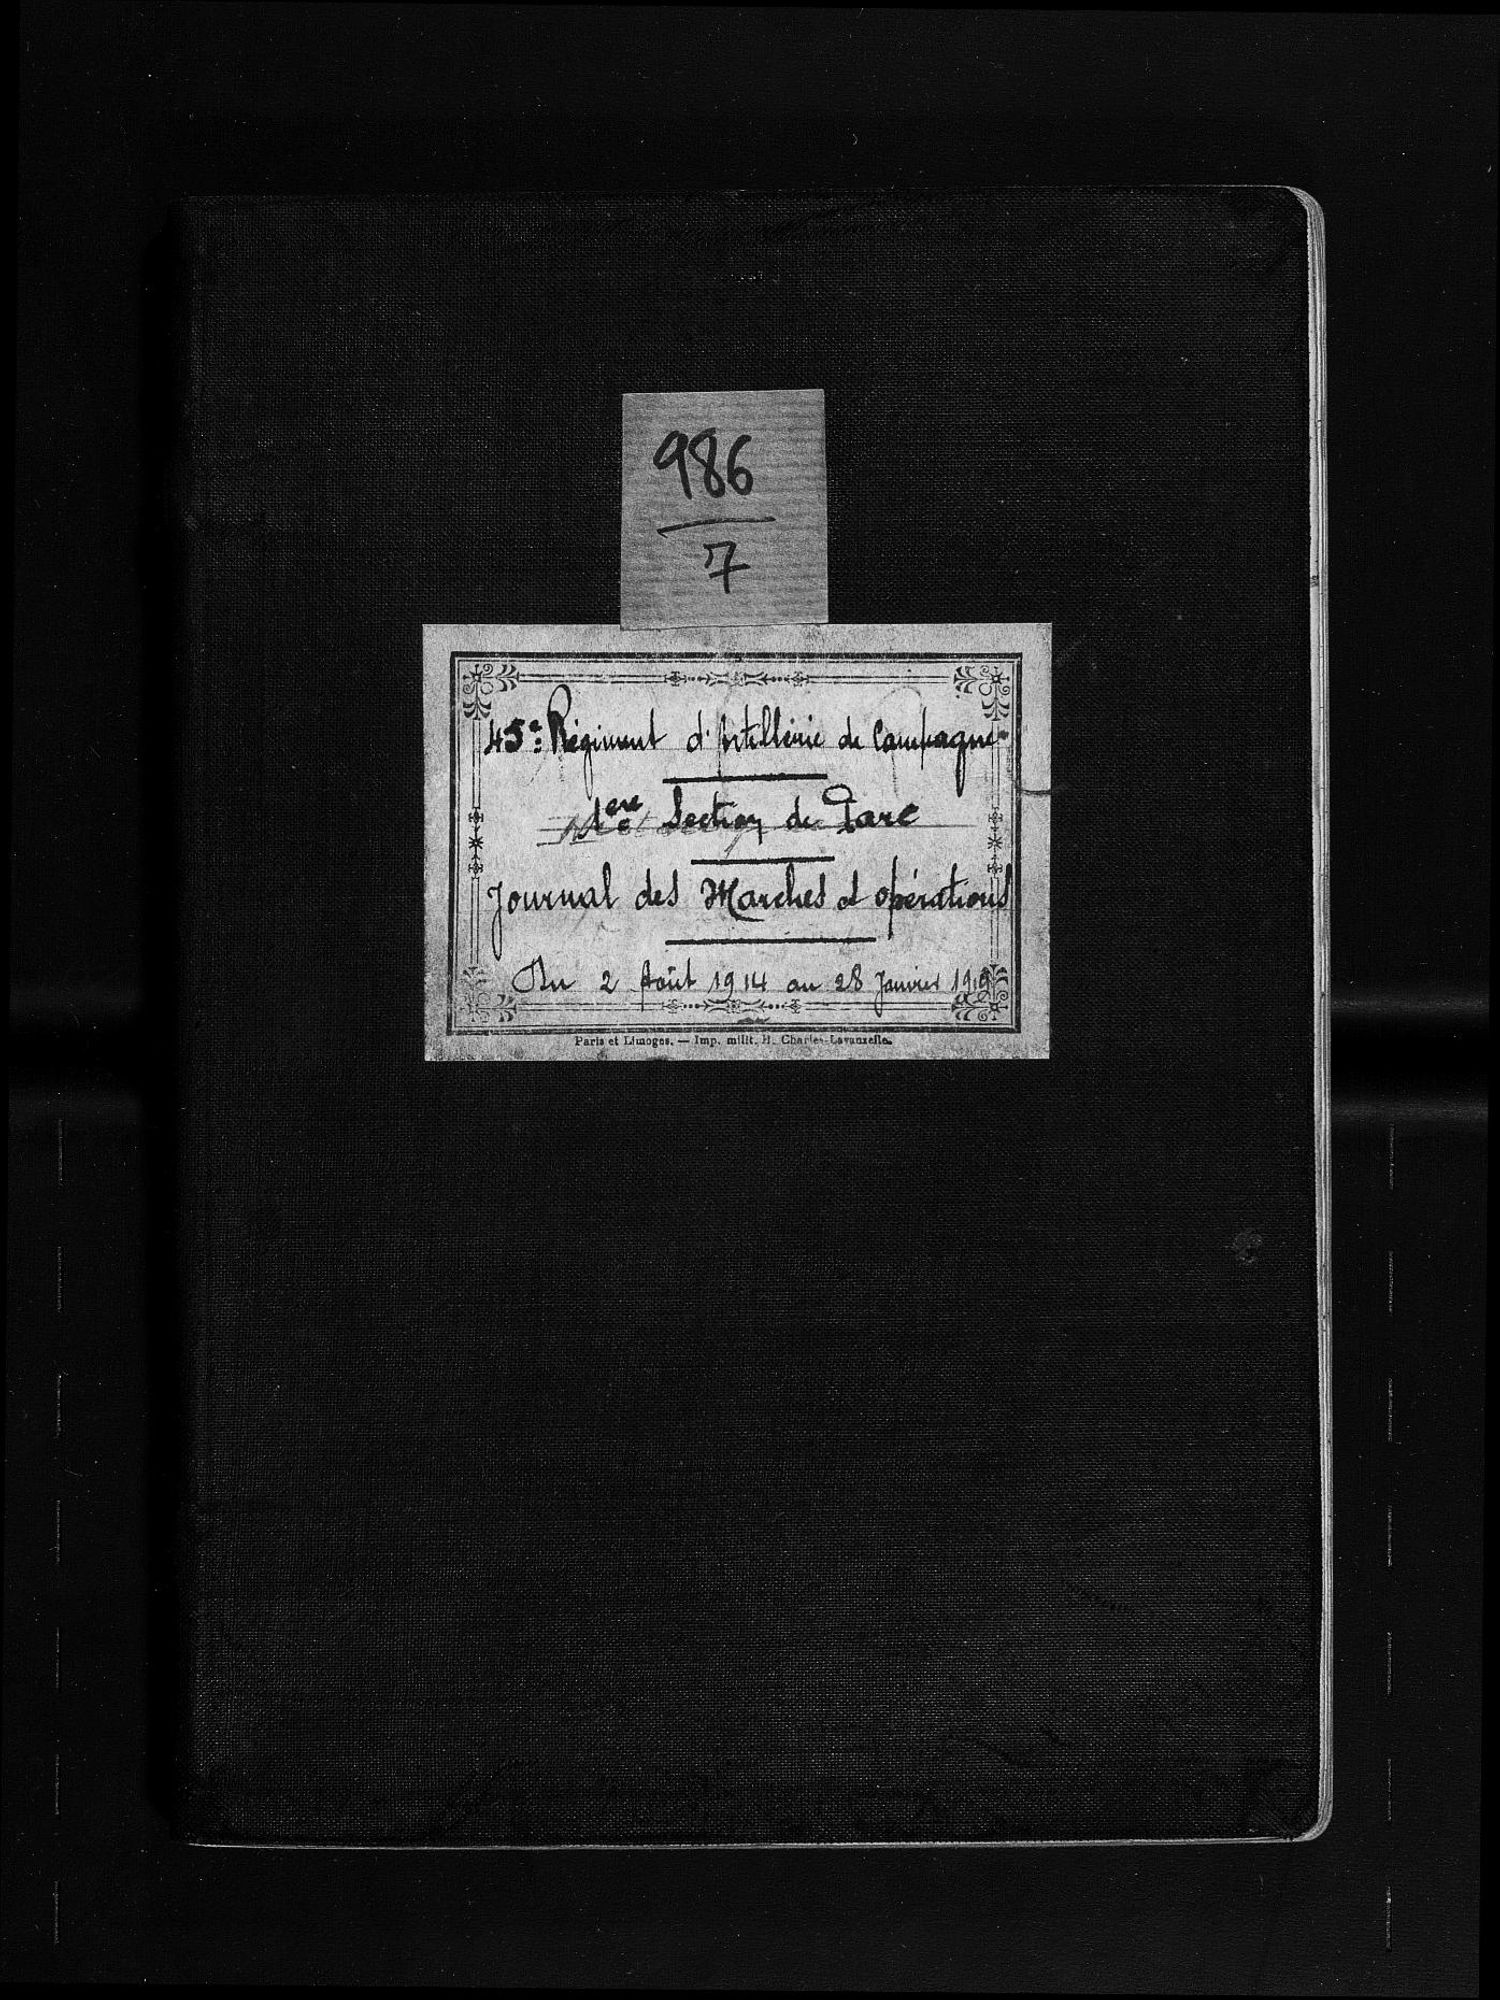 986
7
45e Régiment d'Artillerie de Campagne
1ere Section de Parc
Journal des Marches et opérations
Du 2 Août 1914 au 28 Janvier 1919
Paris et Limoges. — Imp. milit. H. Charles-Lavauzelle.